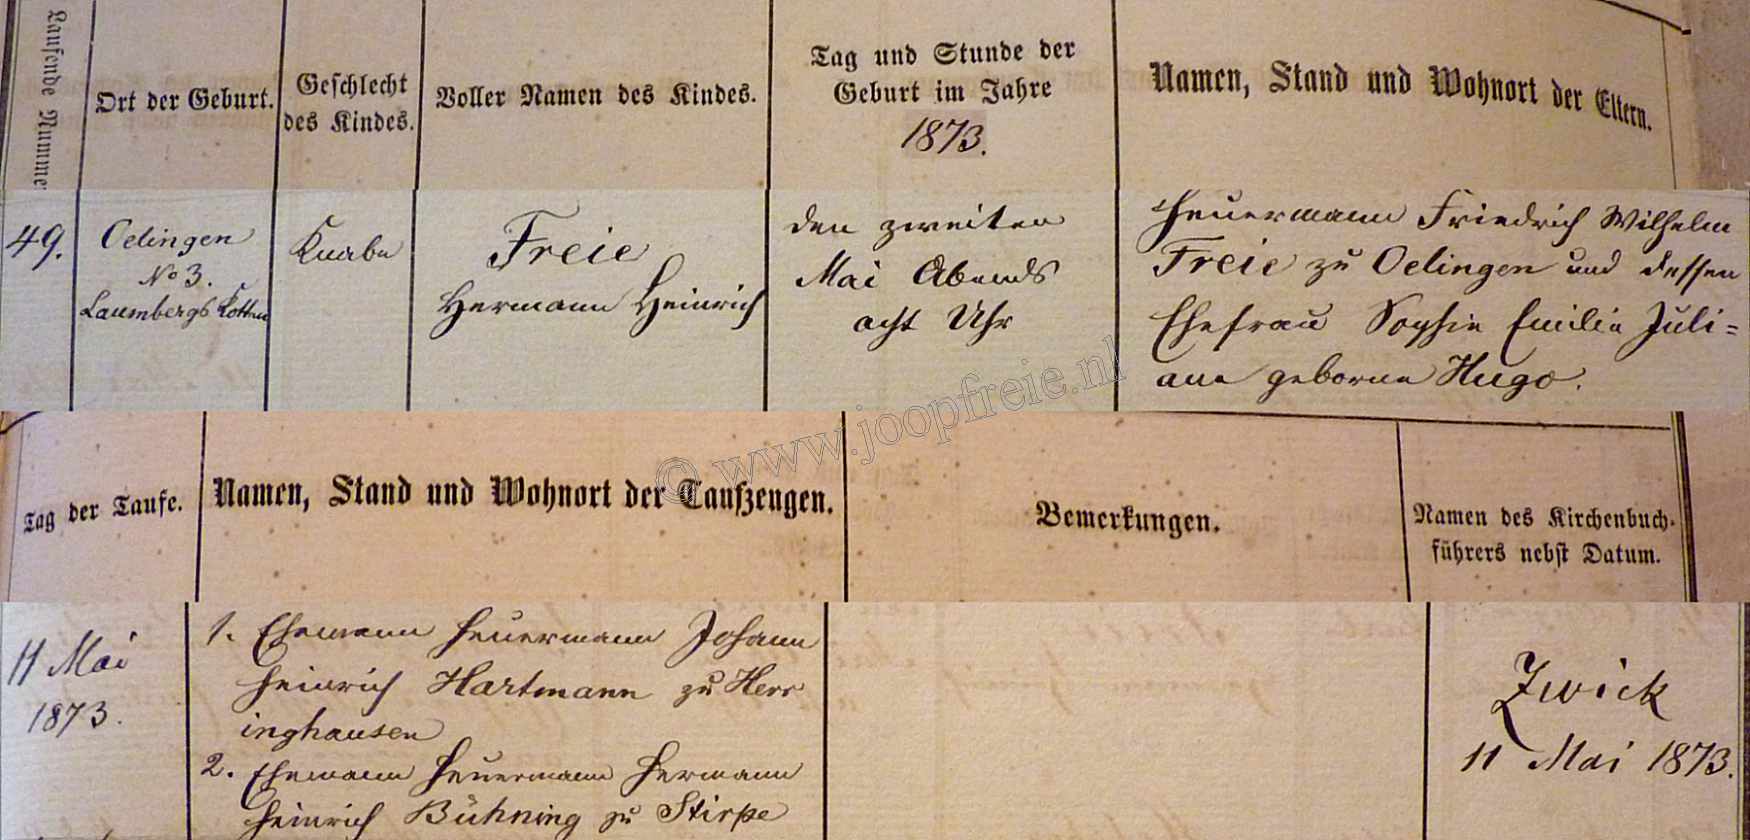 Laufende Numme
Ort der Geburt.
Geschlecht
des Kindes.
Voller Namen des Kindes.
Tag und Stunde der
Geburt im Jahre
1873.
Namen, Stand und Wohnort der Eltern.
49.
Oelingen
No 3.
Laumbergs Kotten
Knabe
Freie
Hermann Heinrich
den zweiten
Mai Abends
acht Uhr
Heuermann Friedrich Wilhelm
Freie zu Oelingen und dessen
Ehefrau Sophie Emilie Juli=
ane geborne Hugo.
© www.joopfreie.nl
Tag der Taufe.
Namen, Stand und Wohnort der Taufzeugen.
Bemerkungen.
Namen des Kirchenbuch-
führers nebst Datum.
11 Mai
1873.
1. Ehemann Heuermann Johann
Heinrich Hartmann zu Herr
inghausen
2. Ehemann Heuermann Hermann
Heinrich Bühning zu Stirpe
Zwick
11 Mai 1873.